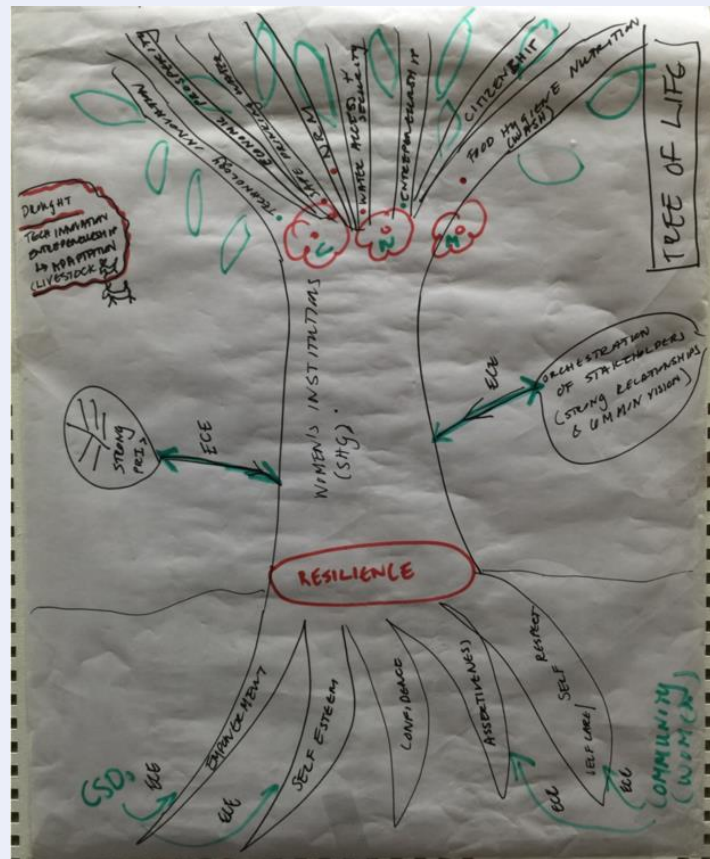 TREE OF LIFE
TECHNOLOGY INNOVATION
ECONOMIC PROSPERITY
SAFE DRINKING WATER
NRM
WATER ACCESS &
SECURITY
ENTREPRENEURSHIP
CITIZENSHIP
FOOD HYGIENE NUTRITION
(WASH)
DROUGHT
TECH INNOVATION
ENTREPRENEURSHIP
↳ ADAPTATION
(LIVESTOCK)
WOMEN'S INSTITUTIONS
(SHG)
STRONG
PRIs
ECE
ECE
ORCHESTRATION
OF STAKEHOLDERS
(STRONG RELATIONSHIPS
& COMMON VISION)
RESILIENCE
EMPOWERMENT
SELF ESTEEM
CONFIDENCE
ASSERTIVENESS
SELF CARE/
SELF
RESPECT
CSOs
ECE
ECE
ECE
ECE
COMMUNITY
(WOMEN)